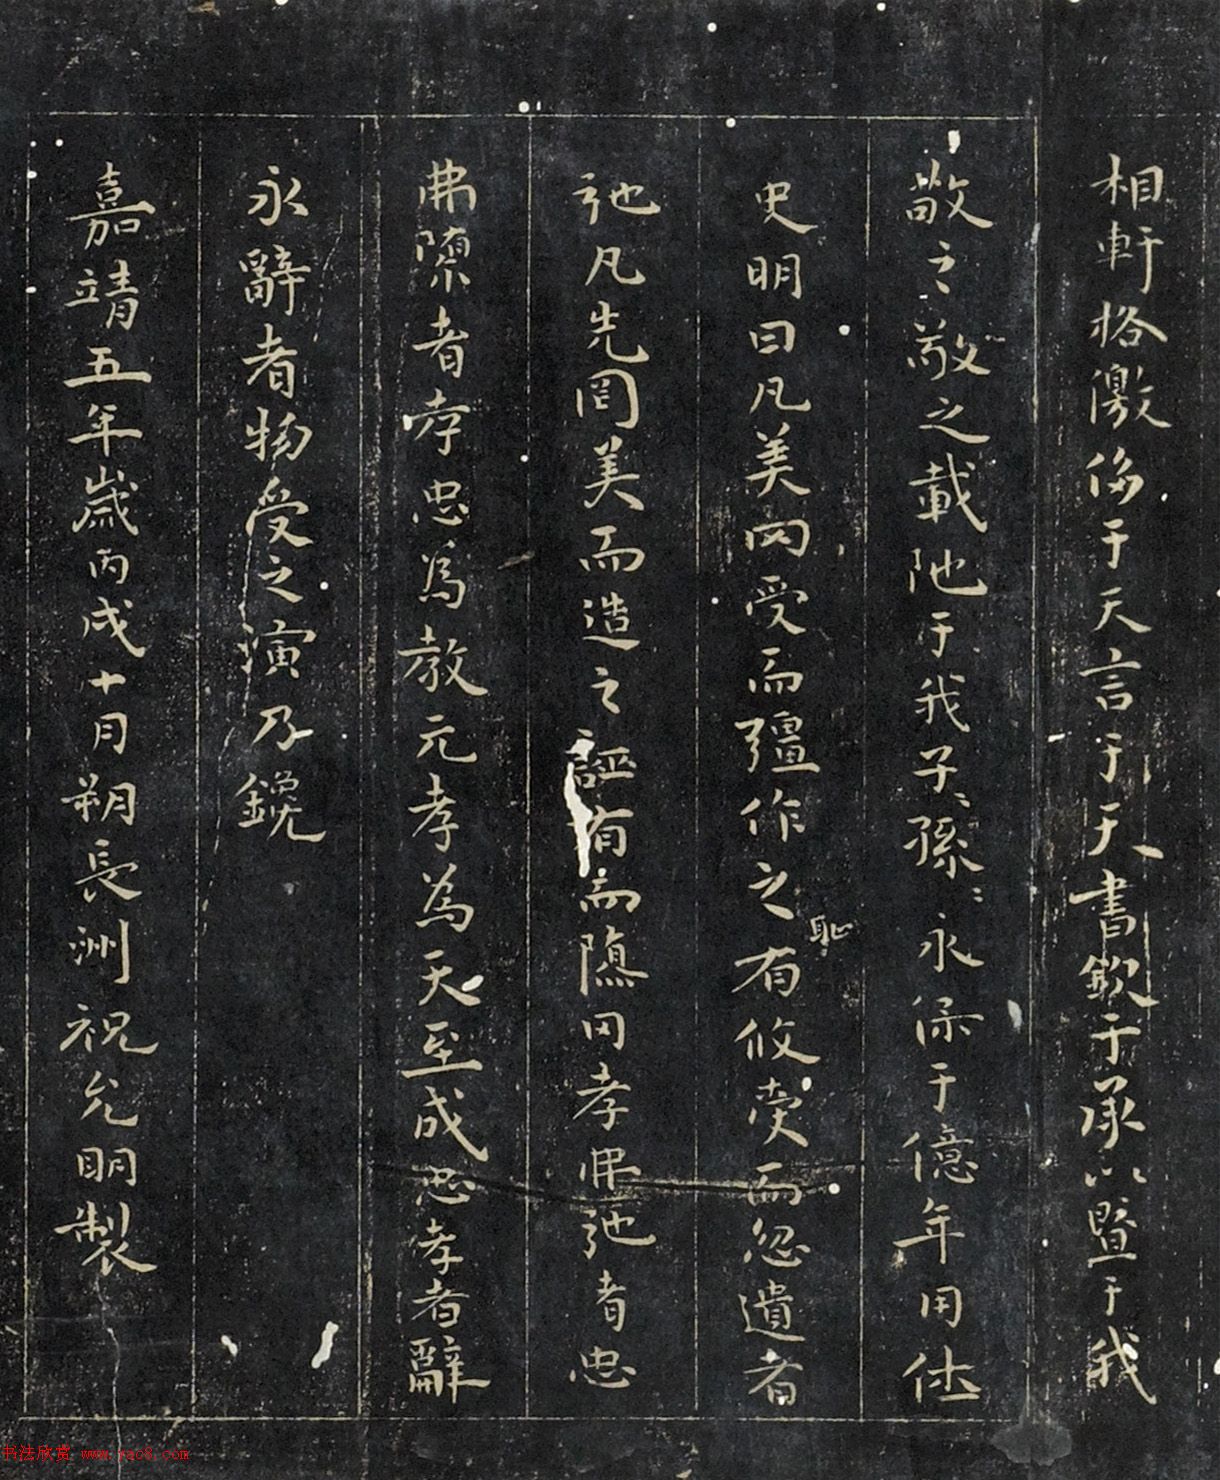 相軒格激侈于天言于天書欽于承以暨于我
敬之敬之載阤于我子〻孫〻永保于億年用休
史明曰凡美罔受而彊作之有攸受而忽遺者
祂凡先罔美而造之誣有而隱罔孝弗弛者忠
弗隙者孝忠為教元孝為天至成忠孝者辭
永辭者物受之演乃鑱
嘉靖五年歲丙戌十月朔長洲祝允明製
恥
书法欣赏 www.yac8.com